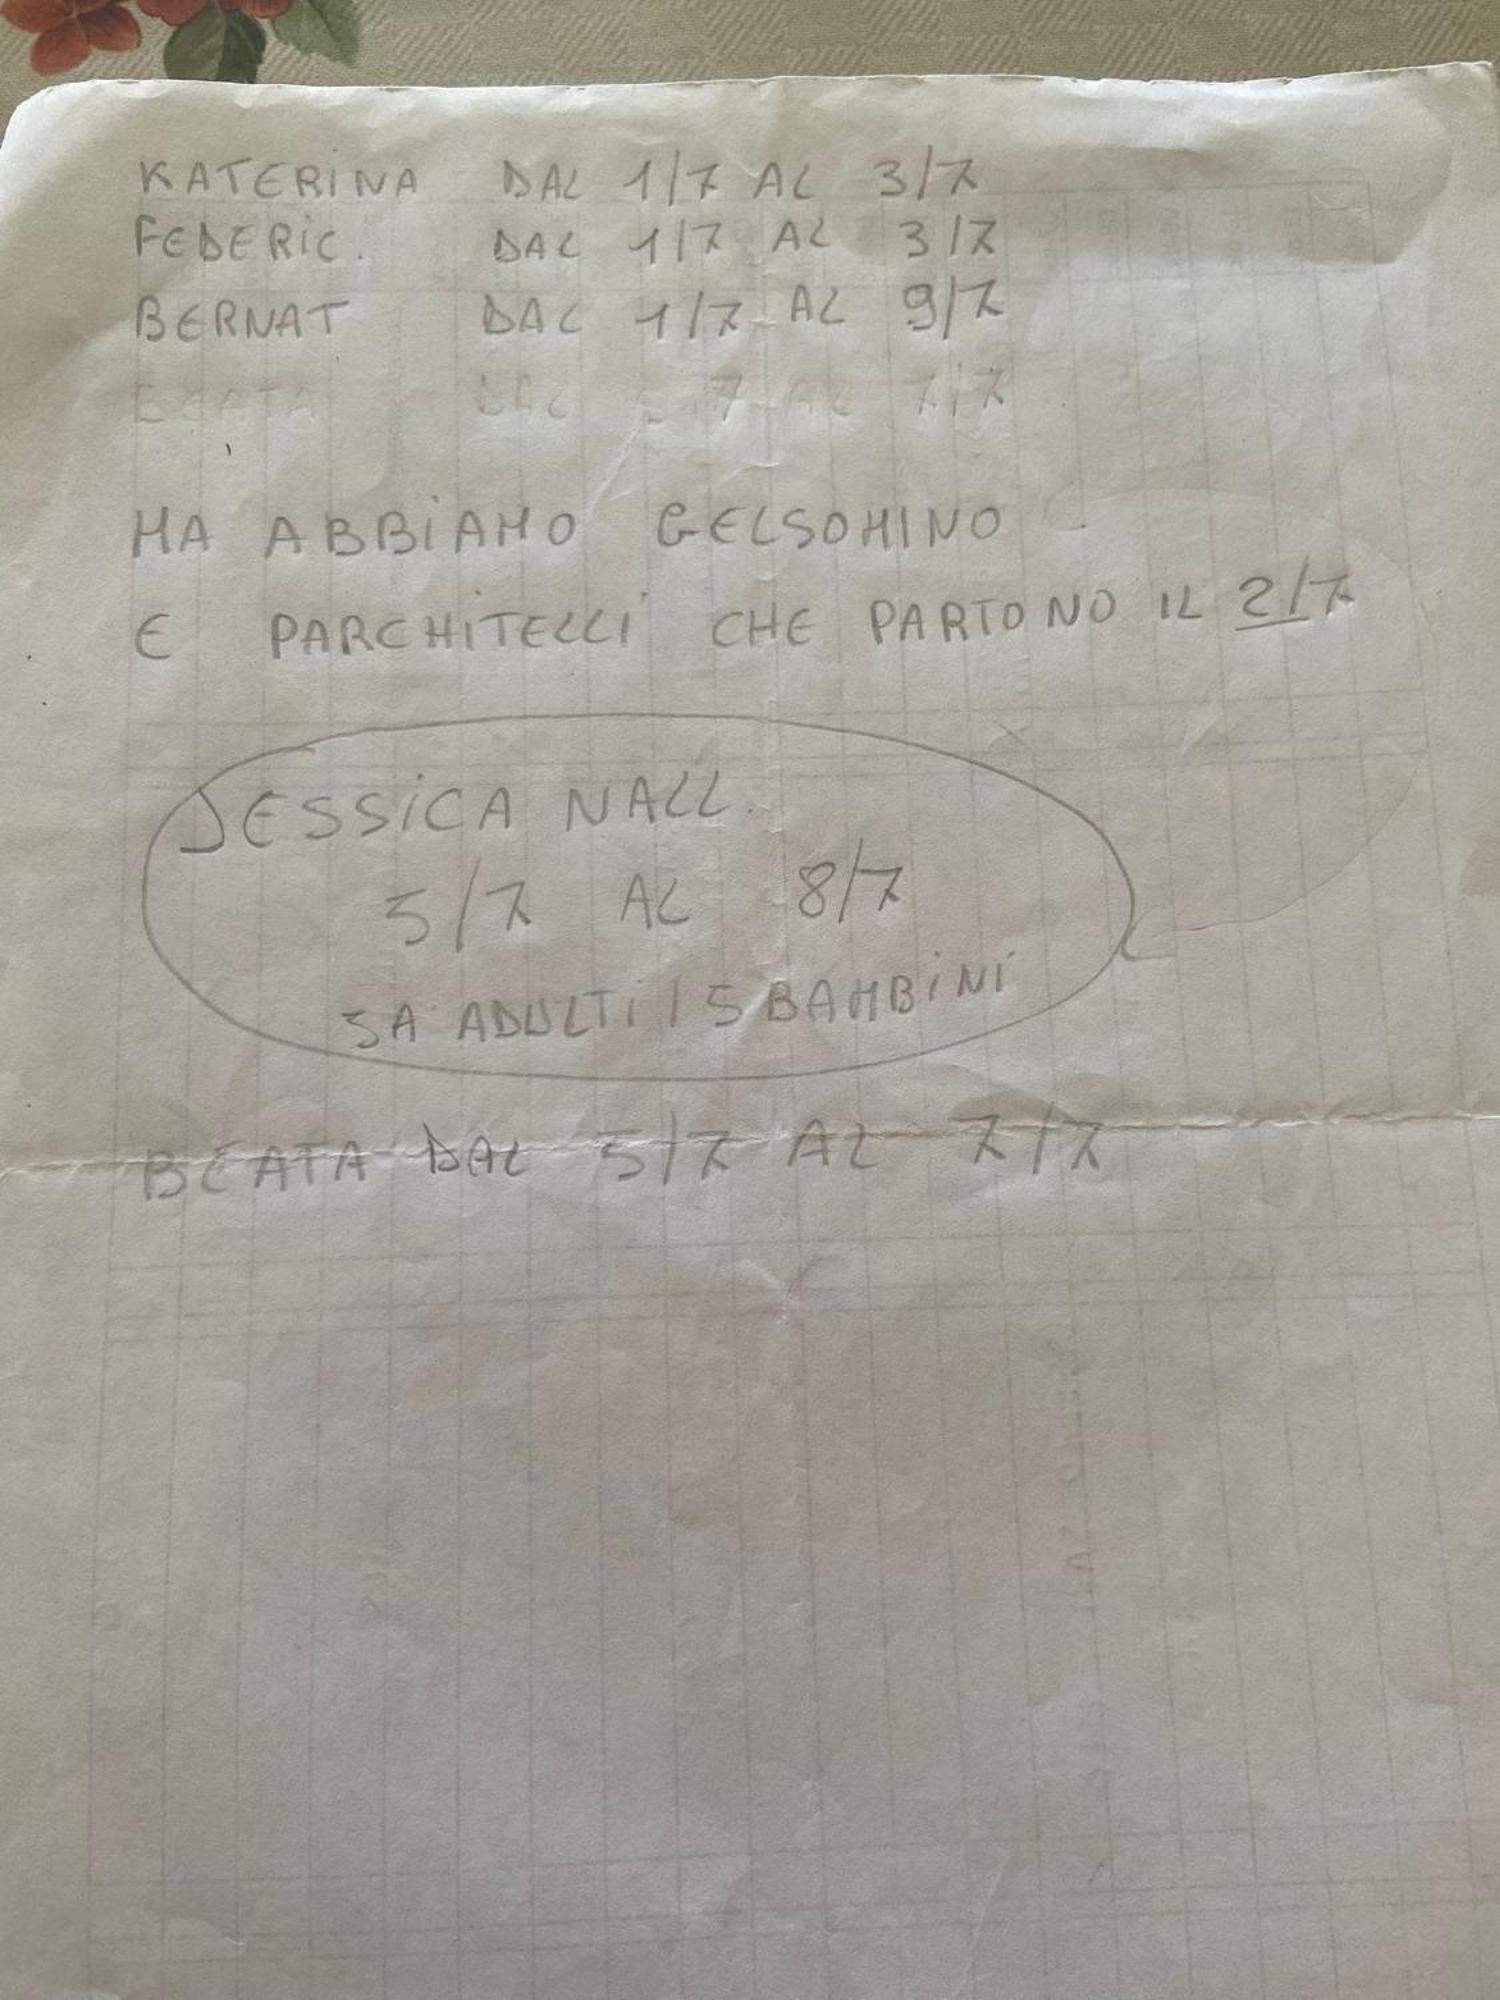 KATERINA DAL 1/7 AL 3/7
FEDERIC. DAL 1/7 AL 3/7
BERNAT DAL 1/7 AL 9/7
BEATA DAL 5/7 AL 7/7
MA ABBIAMO GELSOMINO
E PARCHITELLI CHE PARTONO IL 2/7
JESSICA NALL.
5/7 AL 8/7
3A ADULTI / 5 BAMBINI
BEATA DAL 5/7 AL 7/7